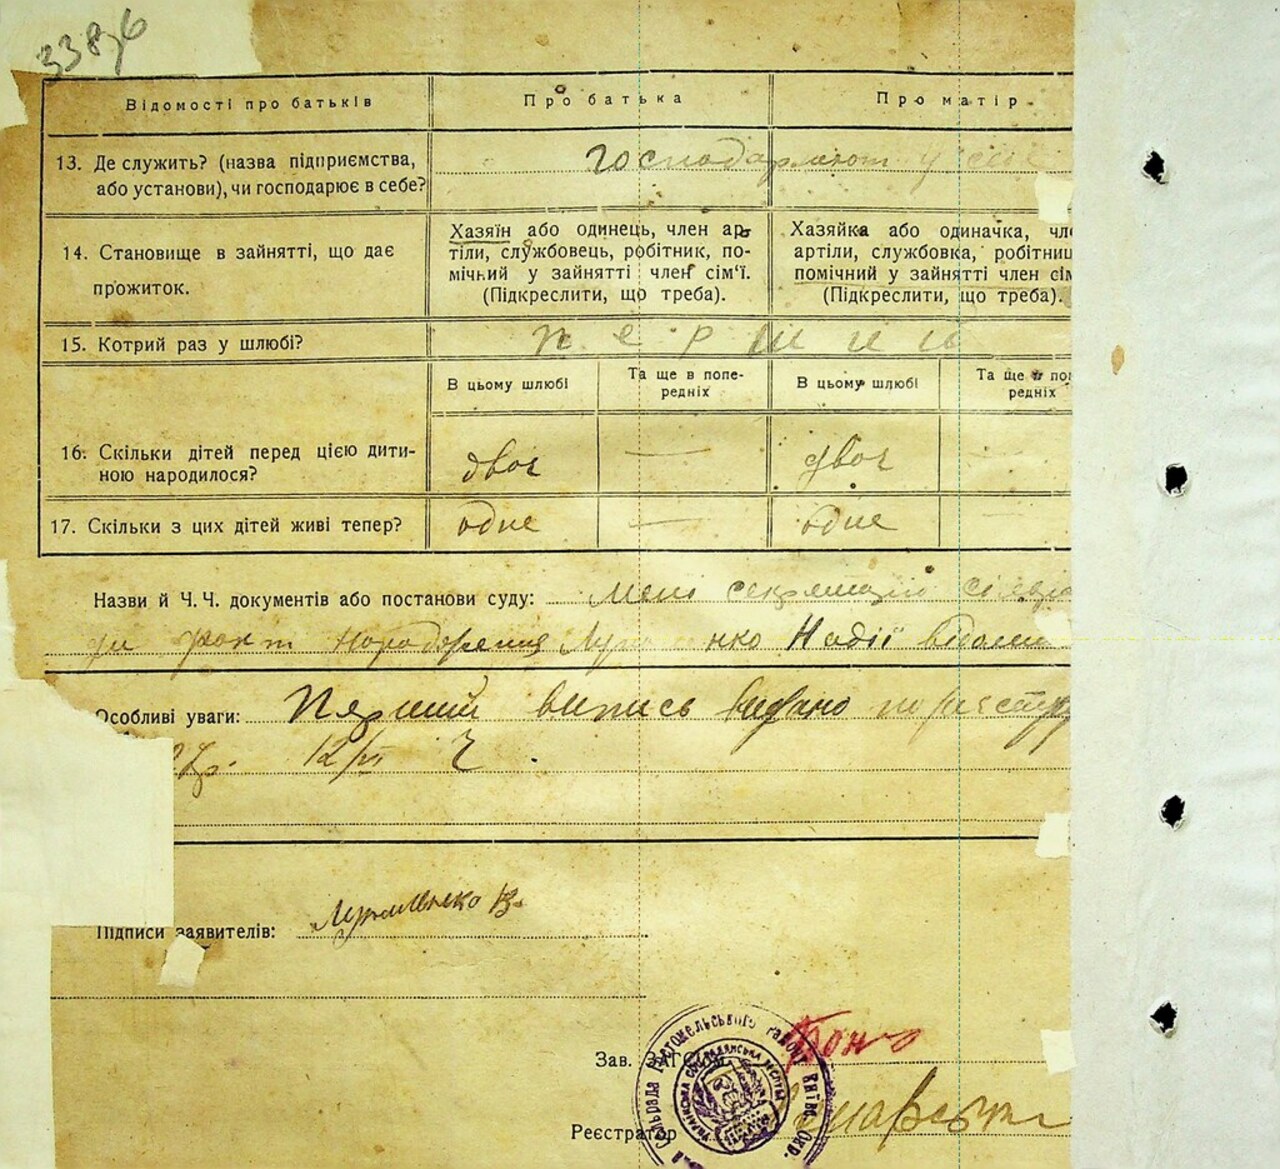 33876
Відомості про батьків
Про батька
Про матір
13. Де служить? (назва підприємства,
або установи), чи господарює в себе?
господарюют у себе
14. Становище в зайнятті, що дає
прожиток.
Хазяїн або одинець, член ар-
тіли, службовець, робітник, по-
мічний у зайнятті член сім'ї.
(Підкреслити, що треба).
Хазяйка або одиначка, чле
артіли, службовка, робітниц
помічний у зайнятті член сім
(Підкреслити, що треба).
15. Котрий раз у шлюбі?
перший
В цьому шлюбі
Та ще в попе-
редніх
В цьому шлюбі
Та ще в поп
редніх
16. Скільки дітей перед цією дити-
ною народилося?
двоє — двоє —
17. Скільки з цих дітей живі тепер?
одне — одне —
Назви й Ч. Ч. документів або постанови суду: Мені секретарю сільра
ди факт народження Надії відоми
Особливі уваги: Перший випись видано по реєстру
12/VI
Підписи заявителів:
Зав. ЗАГСом
Реєстратор
Сільрада Гостомельського району Київс. Окр.
УКРАЇНСЬКА СОЦ. РАДЯНСЬКА РЕСПУБ